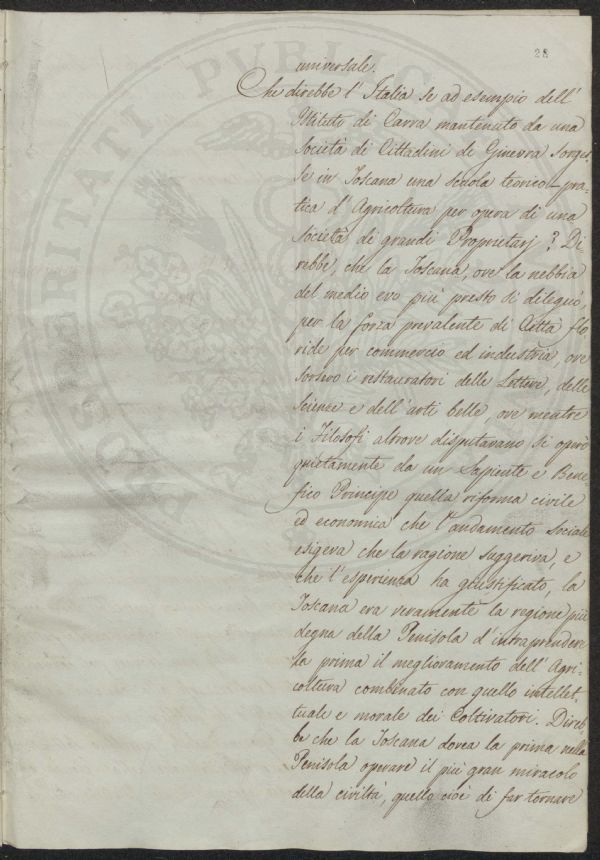 28
universale.
Che direbbe l'Italia se ad esempio dell'
Istituto di Carra mantenuto da una
Società di Cittadini di Ginevra sorges,
se in Toscana una scuola teorico-pra-
tica d'Agricoltura per opera di una
Società di grandi Proprietarj? Di-
rebbe, che la Toscana, ove la nebbia
del medio evo più presto si dileguò,
per la forza prevalente di Città flo
ride per commercio ed industria, ove
sorsero i restauratori delle Lettere, delle
Scienze e dell'arti belle, ove mentre
i Filosofi altrove disputavano si operò
quietamente da un Sapiente e Bene
fico Principe quella riforma civile
ed economia che l'andamento Sociale
esigeva che la ragione suggeriva, e
che l'esperienza ha giustificato, la
Toscana era veramente la regione più
degna della Penisola d'intraprendere
la prima il miglioramento dell'Agri-
coltura combinato con quello intellet,
tuale e morale dei Coltivatori. Direb,
be che la Toscana dovea la prima nella
Penisola operare il più gran miracolo
della civiltà, quello cioè di far tornare
PUBLICA
POSTERITATI